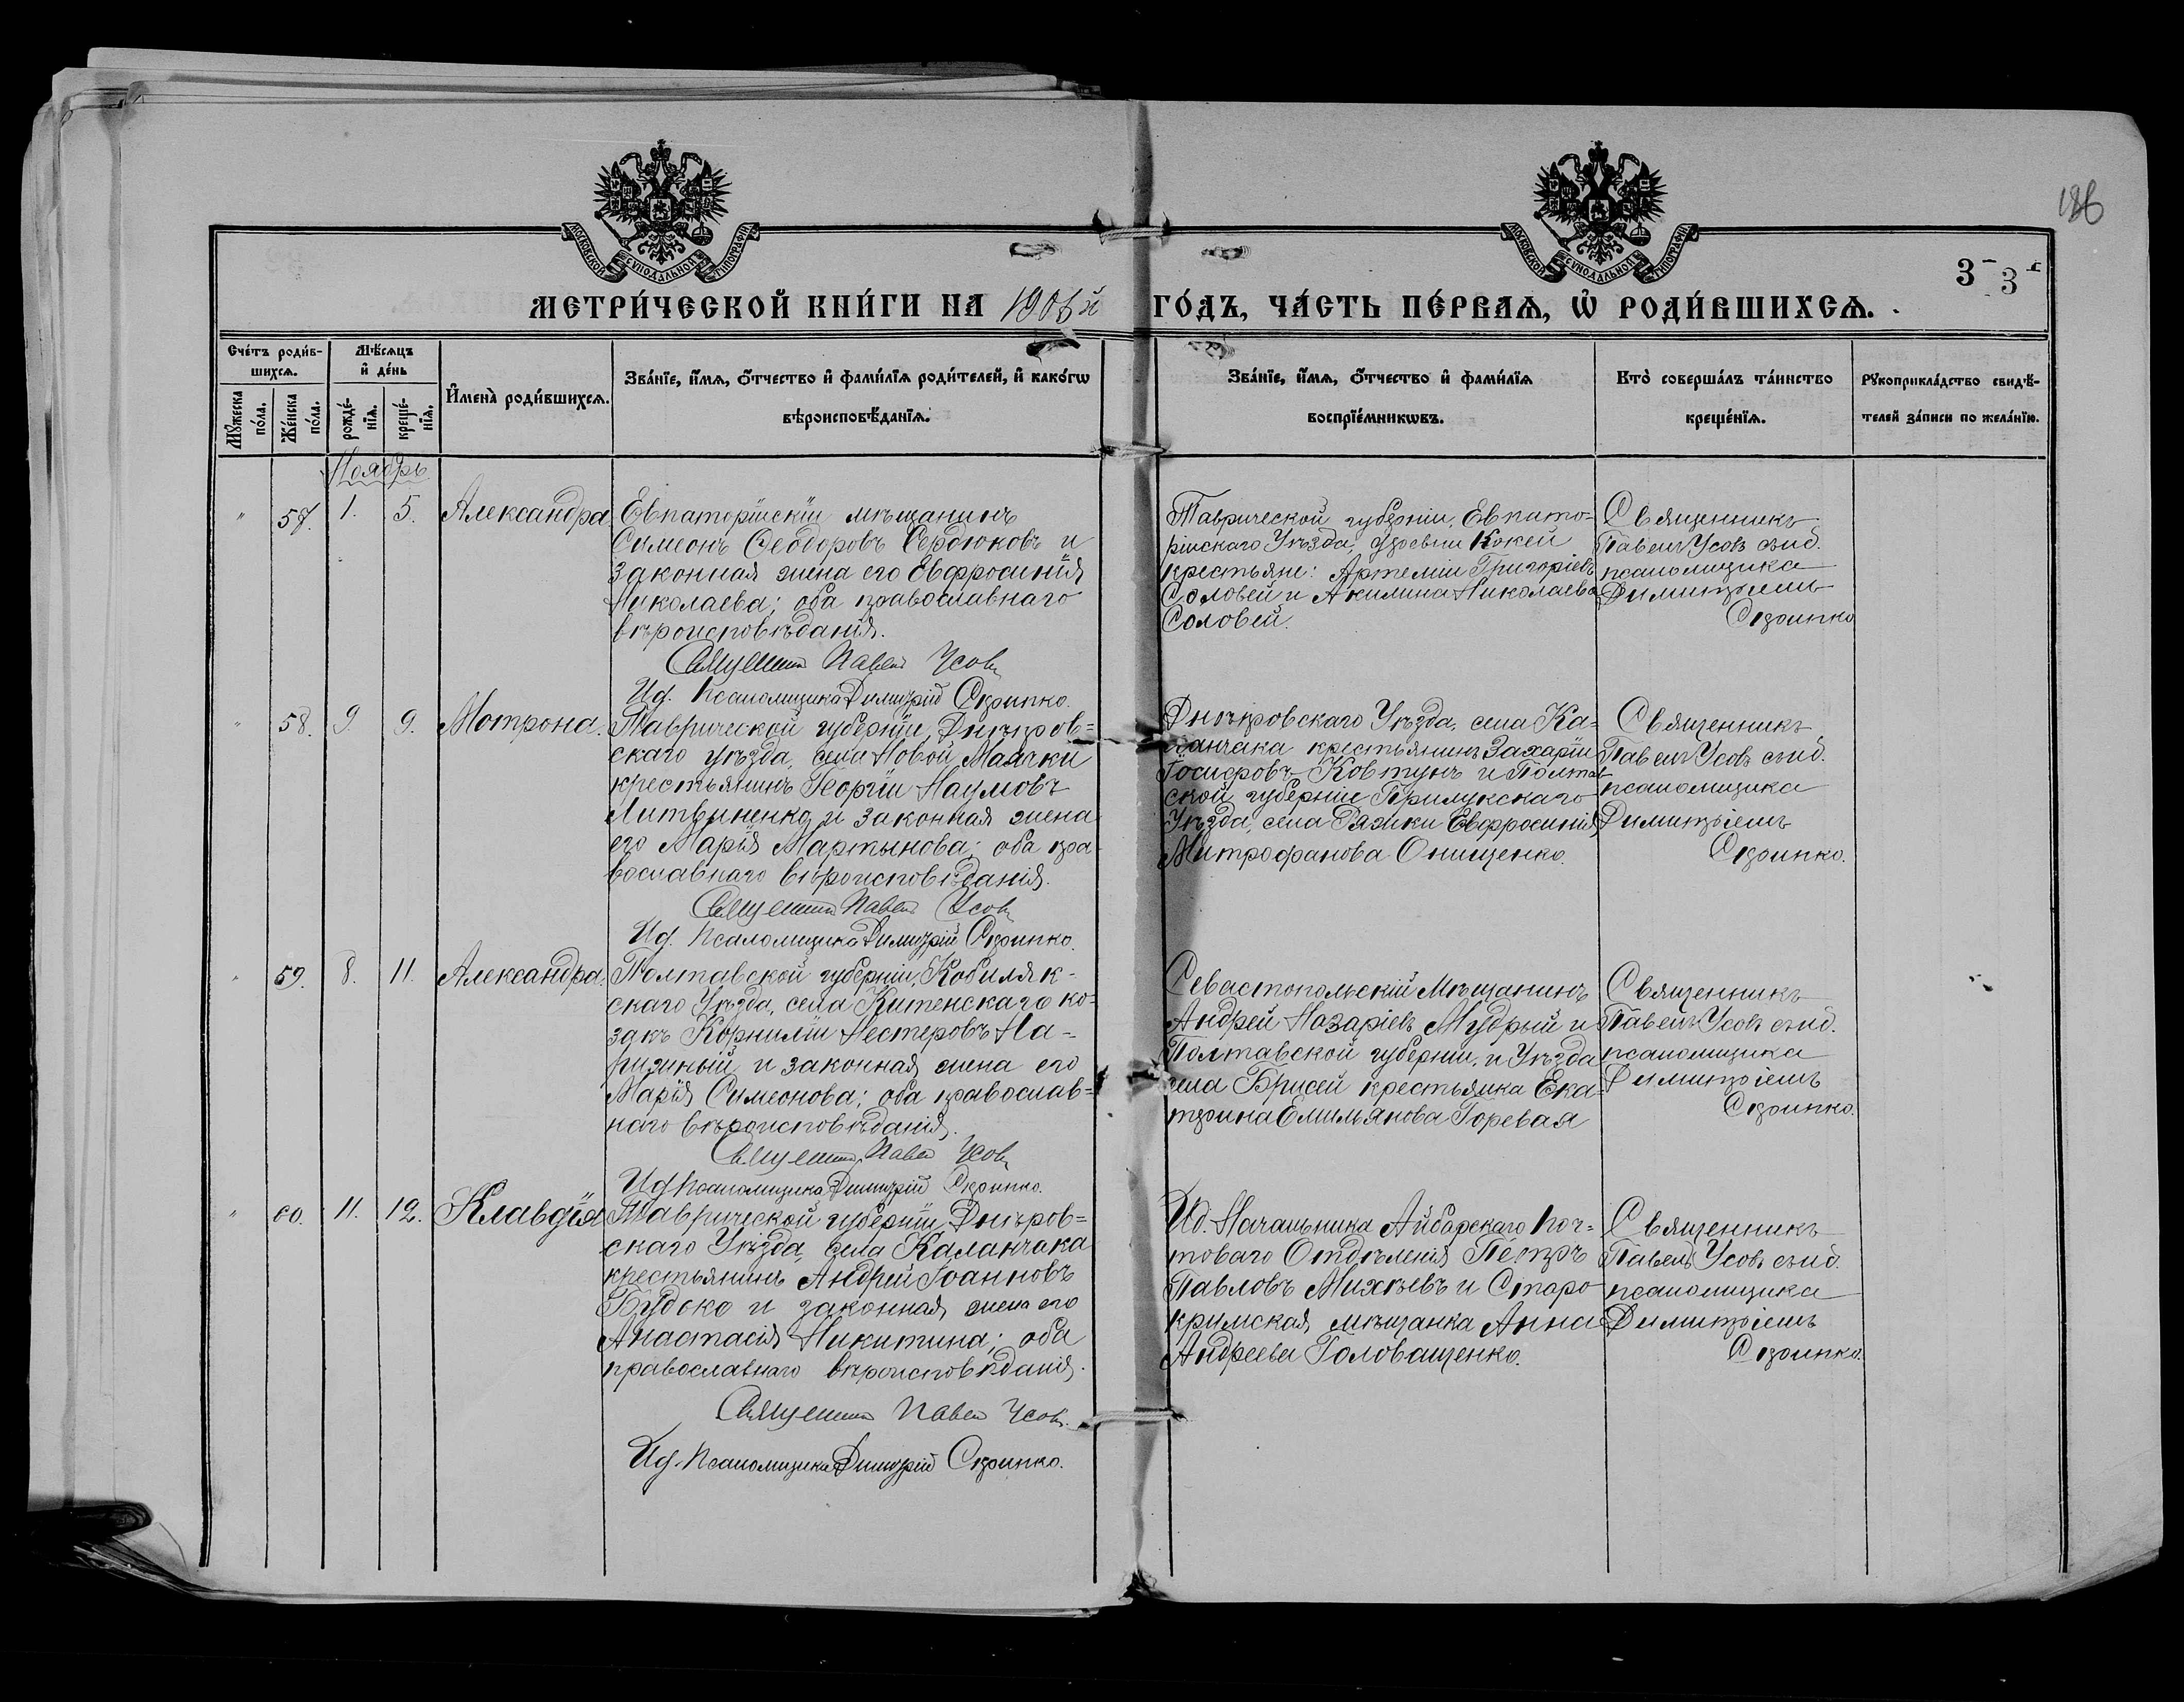 186
МОСКОВСКОЙ СУНОДАЛЬНОЙ ТИПОГРАФІИ
МОСКОВСКОЙ СУНОДАЛЬНОЙ ТИПОГРАФІИ
3 3
МЕТРИ́ЧЕСКОЙ КНИ́ГИ НА 1906й ГО́ДЪ, ЧА́СТЬ ПЕ́РВАЯ, Ѡ҆ РОДИ́ВШИХСЯ.
Сче́тъ роди́в-
шихся.
Мꙋ́жеска по́ла.
Же́нска по́ла.
Мѣ́сяцъ
и҆ де́нь
рожде́-
нїя.
креще́-
нїя.
И҆мена̀ роди́вшихся.
Зва́нїе, и҆́мя, ѻ҆́тчество и҆ фами́лїя роди́телей, и҆ како́гѡ
вѣроисповѣ́данїя.
Зва́нїе, и҆́мя, ѻ҆́тчество и҆ фами́лїя
воспрїе́мникѡвъ.
Кто̀ соверша́лъ та́инство
креще́нїя.
Рꙋкоприкла́дство свидѣ́-
телей за́писи по жела́нїю.
Ноябрь
" 57. 1. 5. Александра
Евпаторійскій мѣщанинъ
Симеонъ Ѳеодоровъ Сердюковъ и
законная жена его Евфросинія
Николаева; оба православнаго
вѣроисповѣданія.
Священникъ Павелъ Усовъ
И.д. Псаломщика Димитрій Скрипко.
Таврической губерніи, Евпато-
рійскаго Уѣзда, деревни Кокей
крестьяне: Артемій Григоріевъ
Соловей и Акилина Николаева
Соловей.
Священникъ
Павелъ Усовъ съ и.д.
псаломщика
Димитріемъ
Скрипко
" 58. 9. 9. Мотрона.
Таврической губерніи, Днѣпров=
скаго уѣзда, села Новой Маячки
крестьянинъ Георгій Наумовъ
Литвиненко и законная жена
его Марія Мартынова; оба пра-
вославнаго вѣроисповѣданія.
Священникъ Павелъ Усовъ
И.д. Псаломщика Димитрій Скрипко.
Днѣпровскаго Уѣзда, села Ка=
ланчака крестьянинъ Захарій
Іосифовъ Ковтунъ и Полтав
ской губерніи Прилукскаго
Уѣзда, села Ряжки Евфросинія
Митрофанова Онищенко.
Священникъ
Павелъ Усовъ съ и.д.
псаломщика
Димитріемъ
Скрипко.
" 59. 8. 11. Александра.
Полтавской губерніи, Кобиляк-
скаго Уѣзда, села Китенскаго ко=
закъ Корнилій Нестеровъ На-
рижный и законная жена его
Марія Симеонова; оба православ=
наго вѣроисповѣданія.
Священникъ Павелъ Усовъ
И.д. Псаломщика Димитрій Скрипко.
Севастопольскій Мѣщанинъ
Андрей Назаріевъ Мудрый и
Полтавской губерніи, и Уѣзда
села Брисей крестьянка Ека-
трина Емильянова Горевая
Священникъ
Павелъ Усовъ съ и.д.
псаломщика
Димитріемъ
Скрипко.
" 60. 11. 12. Клавдія
Таврической губерніи, Днѣпров=
скаго Уѣзда, села Каланчака
крестьянинъ Андрей Іоанновъ
Будоко и законная жена его
Анастасія Никитина; оба
православнаго вѣроисповѣданія.
Священникъ Павелъ Усовъ.
И.д. Псаломщика Димитрій Скрипко.
И.д. Начальника Айбарскаго Поч=
товаго Отдѣленія Петръ
Павловъ Михѣевъ и Старо
кримская мѣщанка Анна
Андреева Головащенко.
Священникъ
Павелъ Усовъ съ и.д.
псаломщика
Димитріемъ
Скрипко.